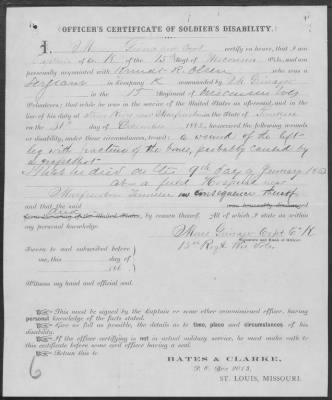 OFFICER'S CERTIFICATE OF SOLDIER'S DISABILITY.
I, certify on honor, that I am
Captain of Co. K of the 15th of Wisconsin Vols., and am
personally acquainted with R. Olsen who was a
Sergeant in Company K commanded by
in the 15th Regiment of Wisconsin Vols
Volunteers; that while he was in service of the United States as aforesaid, and in the
line of his duty at Stone River near Murfreesboro in the State of Tennessee
on the 31st day of December 1862, he received the following wounds
or disability, under these circumstances, to-wit: a wound of the left
leg with fracture of the bones, probably caused by
grapeshot
that he died on the 9th day of January 1863
at a field Hospital near
Murfreesboro Tennessee in consequence thereof
and that the said was honorably discharged
died by reason thereof. All of which I state as within
my personal knowledge.
Capt Co K
15th Regt Wis Vols.
Signature and Rank of Officer.
Sworn to and subscribed before
me, this day of
186
Witness my hand and official seal.
This must be signed by the Captain or some other commissioned officer, having
personal knowledge of the facts stated.
Give as full as possible, the details as to time, place and circumstances of his
disability.
If the officer certifying is not in actual military service, he must make oath to
this certificate before some civil officer having a seal.
Return this to
BATES & CLARKE,
P. O. Box 2013,
ST. LOUIS, MISSOURI.
6